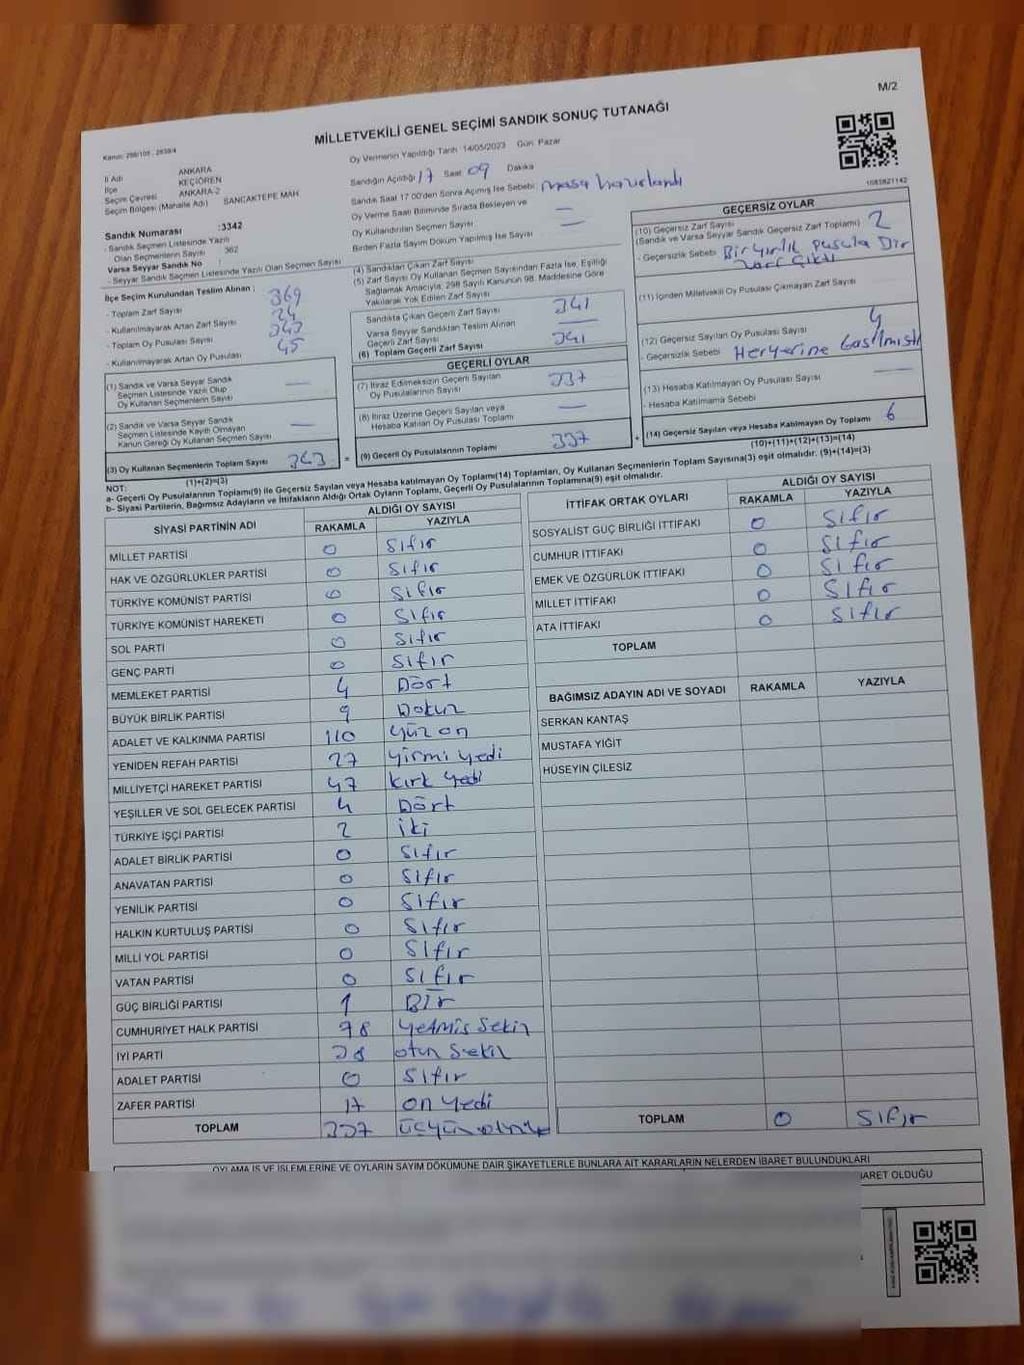 M/2
MİLLETVEKİLİ GENEL SEÇİMİ SANDIK SONUÇ TUTANAĞI
Kanun: 298/105 , 2839/4
İl Adı ANKARA
İlçe KEÇİÖREN
Seçim Çevresi ANKARA-2
Seçim Bölgesi (Mahalle Adı) SANCAKTEPE MAH
Oy Vermenin Yapıldığı Tarih 14/05/2023 Gün: Pazar
Sandığın Açıldığı 17 Saat 09 Dakika
Sandık Saat 17:00'den Sonra Açılmış İse Sebebi: masa hazırlandı
Oy Verme Saati Bitiminde Sırada Bekleyen ve
Oy Kullandırılan Seçmen Sayısı —
Birden Fazla Sayım Döküm Yapılmış İse Sayısı —
1083821142
Sandık Numarası :3342
- Sandık Seçmen Listesinde Yazılı
Olan Seçmenlerin Sayısı : 362
Varsa Seyyar Sandık No :
- Seyyar Sandık Seçmen Listesinde Yazılı Olan Seçmen Sayısı
İlçe Seçim Kurulundan Teslim Alınan :
- Toplam Zarf Sayısı 369
- Kullanılmayarak Artan Zarf Sayısı 24
- Toplam Oy Pusulası Sayısı
- Kullanılmayarak Artan Oy Pusulası 45
(1) Sandık ve Varsa Seyyar Sandık
Seçmen Listesinde Yazılı Olup
Oy Kullanan Seçmenlerin Sayısı —
(2) Sandık ve Varsa Seyyar Sandık
Seçmen Listesinde Kayıtlı Olmayan
Kanun Gereği Oy Kullanan Seçmen Sayısı —
(3) Oy Kullanan Seçmenlerin Toplam Sayısı 343
(1)+(2)=(3)
(4) Sandıktan Çıkan Zarf Sayısı
(5) Zarf Sayısı Oy Kullanan Seçmen Sayısından Fazla İse, Eşitliği
Sağlamak Amacıyla; 298 Sayılı Kanunun 98. Maddesine Göre
Yakılarak Yok Edilen Zarf Sayısı
Sandıkta Çıkan Geçerli Zarf Sayısı 341
Varsa Seyyar Sandıktan Teslim Alınan
Geçerli Zarf Sayısı —
(6) Toplam Geçerli Zarf Sayısı 341
GEÇERLİ OYLAR
(7) İtiraz Edilmeksizin Geçerli Sayılan
Oy Pusulalarının Sayısı 337
(8) İtiraz Üzerine Geçerli Sayılan veya
Hesaba Katılan Oy Pusulası Toplamı —
(9) Geçerli Oy Pusulalarının Toplamı 337
GEÇERSİZ OYLAR
(10) Geçersiz Zarf Sayısı
(Sandık ve Varsa Seyyar Sandık Geçersiz Zarf Toplamı) 2
- Geçersizlik Sebebi Bir Pusula Bir
çıktı
(11) İçinden Milletvekili Oy Pusulası Çıkmayan Zarf Sayısı
(12) Geçersiz Sayılan Oy Pusulası Sayısı 4
- Geçersizlik Sebebi Heryerine basılmıştı
(13) Hesaba Katılmayan Oy Pusulası Sayısı —
- Hesaba Katılmama Sebebi
(14) Geçersiz Sayılan veya Hesaba Katılmayan Oy Toplamı 6
(10)+(11)+(12)+(13)=(14)
NOT:
a- Geçerli Oy Pusulalarının Toplamı(9) ile Geçersiz Sayılan veya Hesaba katılmayan Oy Toplamı(14) Toplamları, Oy Kullanan Seçmenlerin Toplam Sayısına(3) eşit olmalıdır. (9)+(14)=(3)
b- Siyasi Partilerin, Bağımsız Adayların ve İttifakların Aldığı Ortak Oyların Toplamı, Geçerli Oy Pusulalarının Toplamına(9) eşit olmalıdır.
SİYASİ PARTİNİN ADI ALDIĞI OY SAYISI
RAKAMLA YAZIYLA
MİLLET PARTİSİ 0 Sıfır
HAK VE ÖZGÜRLÜKLER PARTİSİ 0 Sıfır
TÜRKİYE KOMÜNİST PARTİSİ 0 Sıfır
TÜRKİYE KOMÜNİST HAREKETİ 0 Sıfır
SOL PARTİ 0 Sıfır
GENÇ PARTİ 0 Sıfır
MEMLEKET PARTİSİ 4 Dört
BÜYÜK BİRLİK PARTİSİ 9 Dokuz
ADALET VE KALKINMA PARTİSİ 110 yüz on
YENİDEN REFAH PARTİSİ 27 yirmi yedi
MİLLİYETÇİ HAREKET PARTİSİ 47 kırk yedi
YEŞİLLER VE SOL GELECEK PARTİSİ 4 Dört
TÜRKİYE İŞÇİ PARTİSİ 2 iki
ADALET BİRLİK PARTİSİ 0 Sıfır
ANAVATAN PARTİSİ 0 Sıfır
YENİLİK PARTİSİ 0 Sıfır
HALKIN KURTULUŞ PARTİSİ 0 Sıfır
MİLLİ YOL PARTİSİ 0 Sıfır
VATAN PARTİSİ 0 Sıfır
GÜÇ BİRLİĞİ PARTİSİ 1 Bir
CUMHURİYET HALK PARTİSİ 78 yetmiş sekiz
İYİ PARTİ 38 otuz sekiz
ADALET PARTİSİ 0 Sıfır
ZAFER PARTİSİ 17 on yedi
TOPLAM 337
İTTİFAK ORTAK OYLARI ALDIĞI OY SAYISI
RAKAMLA YAZIYLA
SOSYALİST GÜÇ BİRLİĞİ İTTİFAKI 0 Sıfır
CUMHUR İTTİFAKI 0 Sıfır
EMEK VE ÖZGÜRLÜK İTTİFAKI 0 Sıfır
MİLLET İTTİFAKI 0 Sıfır
ATA İTTİFAKI 0 Sıfır
TOPLAM
BAĞIMSIZ ADAYIN ADI VE SOYADI RAKAMLA YAZIYLA
SERKAN KANTAŞ
MUSTAFA YİĞİT
HÜSEYİN ÇİLESİZ
TOPLAM 0 Sıfır
OYLAMA İŞ VE İŞLEMLERİNE VE OYLARIN SAYIM DÖKÜMÜNE DAİR ŞİKAYETLERLE BUNLARA AİT KARARLARIN NELERDEN İBARET BULUNDUKLARI
İBARET OLDUĞU